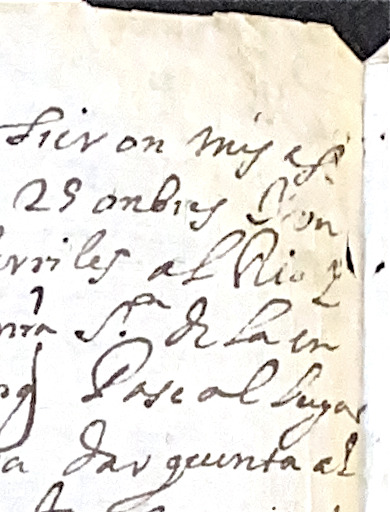 sieron mis es
25 onbres Con
rriles al Rio y
nra S.ra de la en
Pase al lugar
a dar quenta al